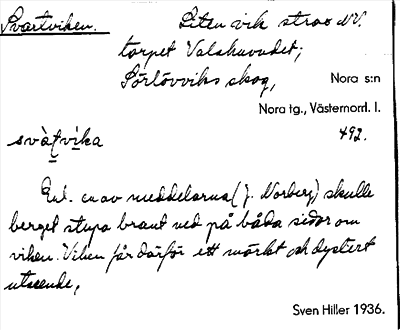 Svartviken. Liten vik strax NV.
torpet Valskuvudet;
Sörlövviks skog, Nora s:n
Nora tg., Västernorrl. l.
svàt̯vi̱ka 492.
Enl. en av meddelarna (J. Norberg) skulle
berget stupa brant ned på båda sidor om
viken. Viken får därför ett mörkt och dystert
utseende,
Sven Hiller 1936.